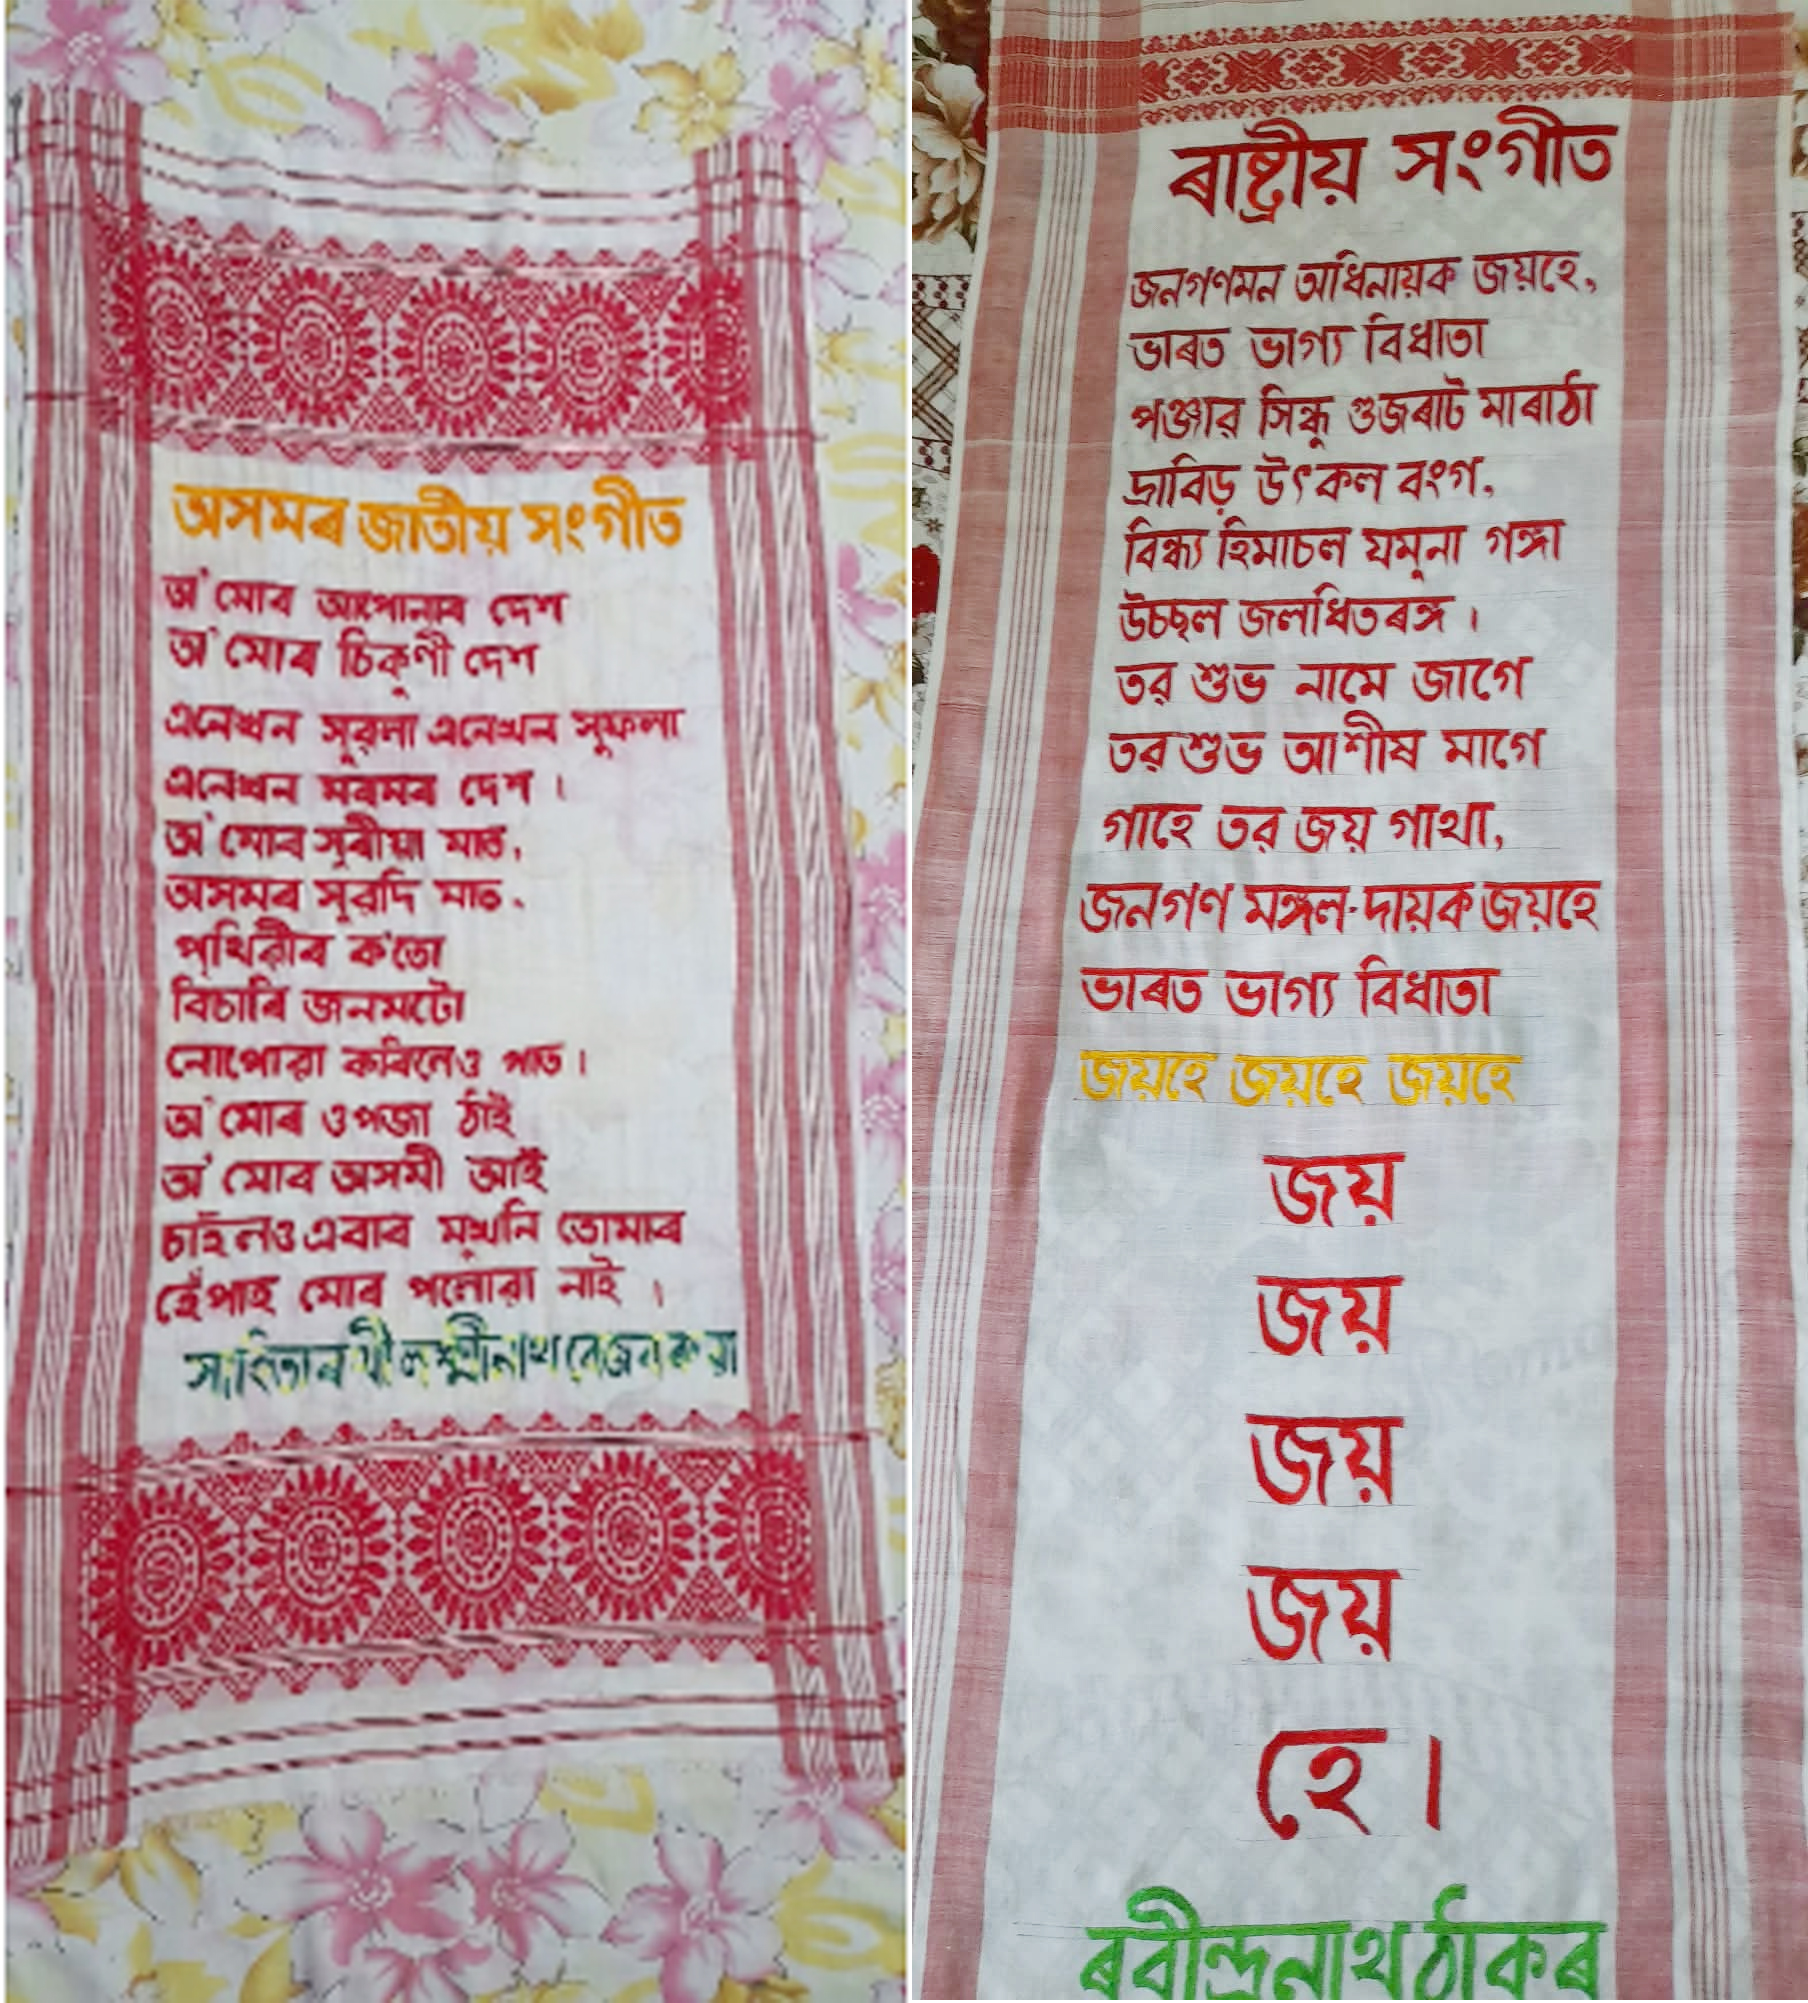 অসমৰ জাতীয় সংগীত
অ' মোৰ আপোনাৰ দেশ
অ' মোৰ চিকুণী দেশ
এনেখন সুৱলা এনেখন সুফলা
এনেখন মৰমৰ দেশ ।
অ' মোৰ সুৰীয়া মাত,
অসমৰ সুৱদি মাত,
পৃথিৱীৰ ক'তো
বিচাৰি জনমটো
নোপোৱা কৰিলেও পাত ।
অ' মোৰ ওপজা ঠাই
অ' মোৰ অসমী আই
চাইলওঁ এবাৰ মুখনি তোমাৰ
হেঁপাহ মোৰ পলোৱা নাই ।
শ্ৰী লক্ষ্মীনাথ বেজবৰুৱা
ৰাষ্ট্ৰীয় সংগীত
জনগণমন অধিনায়ক জয়হে,
ভাৰত ভাগ্য বিধাতা
পঞ্জাৱ সিন্ধু গুজৰাট মাৰাঠা
দ্ৰাবিড় উৎকল বংগ,
বিন্ধ্য হিমাচল যমুনা গঙ্গা
উচছল জলধিতৰঙ্গ ।
তৱ শুভ নামে জাগে
তৱ শুভ আশীষ মাগে
গাহে তৱ জয় গাথা,
জনগণ মঙ্গল-দায়ক জয়হে
ভাৰত ভাগ্য বিধাতা
জয়হে জয়হে জয়হে
জয়
জয়
জয়
জয়
হে ।
ৰবীন্দ্ৰনাথ ঠাকৰ